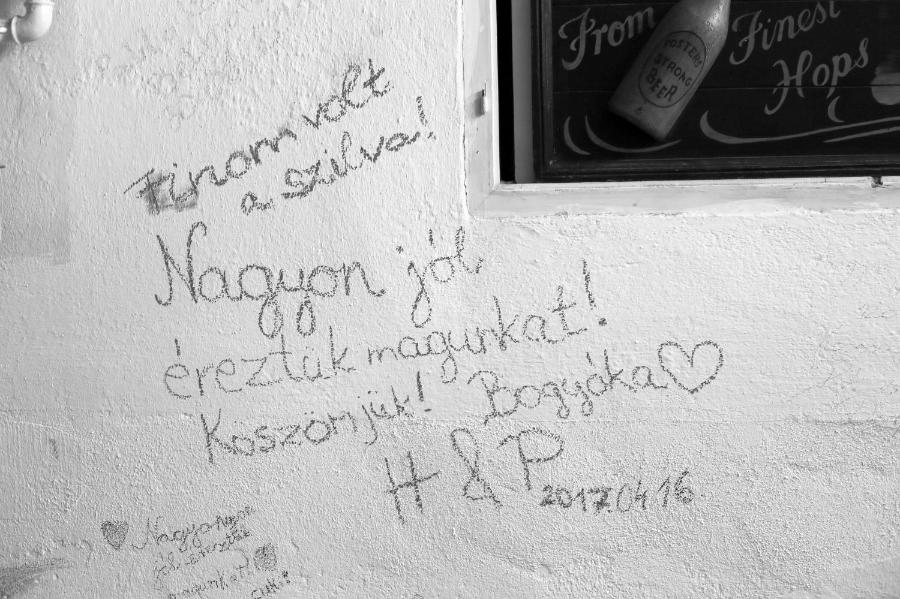 From Finest
Hops
FOSTERS
STRONG
BEER
Finom volt
a szilva!
Nagyon jól
éreztük magunkat!
Köszönjük! Bogyóka♡
H & P
2017.04.16
Nagyon
jól éreztük
magunkat!